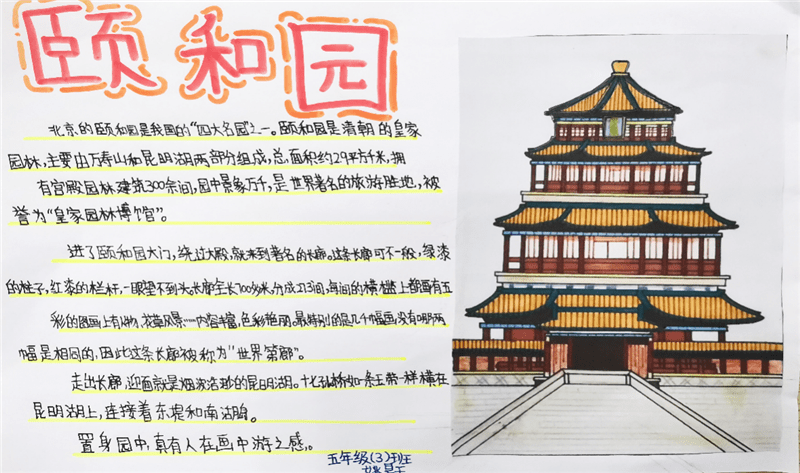 颐和园
北京的颐和园是我国的“四大名园”之一。颐和园是清朝的皇家
园林,主要由万寿山和昆明湖两部分组成,总面积约2.9平方千米,拥
有宫殿园林建筑300余间,园中景象万千,是世界著名的旅游胜地,被
誉为“皇家园林博馆”。
进了颐和园大门,绕过大殿,就来到著名的长廊。这条长廊可不一般,绿漆
的柱子,红漆的栏杆,一眼望不到头。长廊全长700多米,分成273间,每间的横槛上都画有五
彩的图画上有人物、花草、风景……内容丰富,色彩艳丽。最特别的是几千幅画没有哪两
幅是相同的,因此这条长廊被称为“世界第廊”。
走出长廊,迎面就是烟波浩渺的昆明湖。十七孔桥如一条玉带一样横在
昆明湖上,连接着东堤和南湖岛。
置身园中,真有人在画中游之感。
五年级(3)班